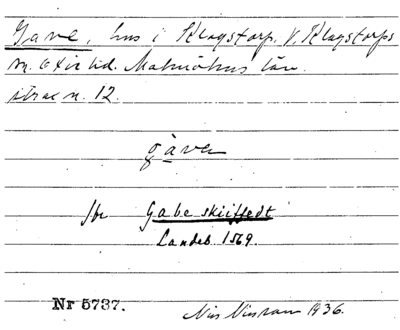 Gave, hus i Klagstorp. V. Klagstorps
sn. Oxie hd. Malmöhus län.
n. 12.
gàven
Jbr Gabe skiifftedt
Landeb. 1569.
Nr 5737. Nils 1936.